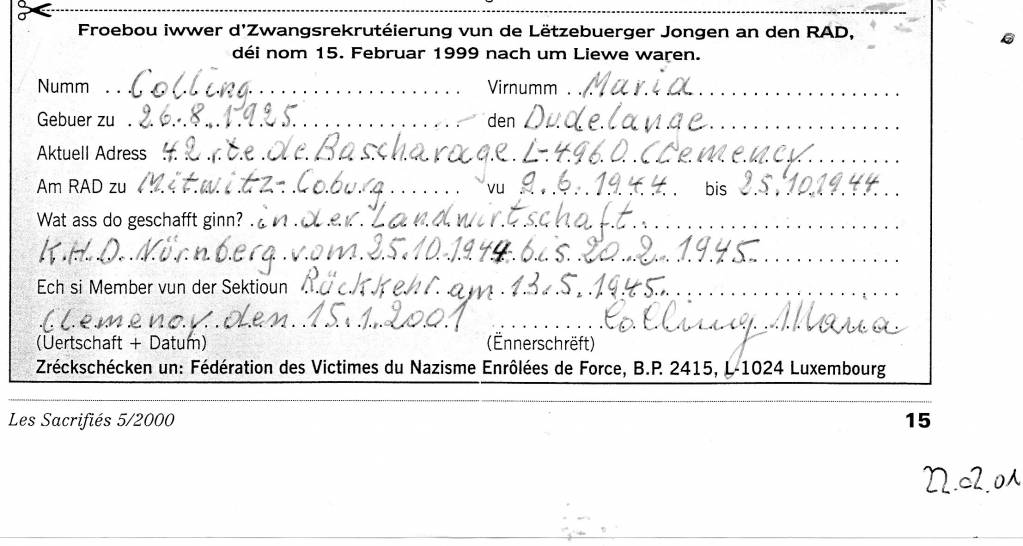 Froebou iwwer d'Zwangsrekrutéierung vun de Lëtzebuerger Jongen an den RAD,
déi nom 15. Februar 1999 nach um Liewe waren.
Numm Colling Virnumm Maria
Gebuer zu 26.8.1925 den Dudelange
Aktuell Adress 42 rte de Bascharage L-4960 Clemency
Am RAD zu Mitwitz-Coburg vu 9.6.1944 bis 25.10.1944
Wat ass do geschafft ginn? in der Landwirtschaft
K.H.D. Nürnberg vom 25.10.1944 bis 20.2.1945
Ech si Member vun der Sektioun Rückkehr am 13.5.1945
Clemency den 15.1.2001 Colling Maria
(Uertschaft + Datum) (Ënnerschrëft)
Zréckschécken un: Fédération des Victimes du Nazisme Enrôlées de Force, B.P. 2415, L-1024 Luxembourg
Les Sacrifiés 5/2000 15
22.02.01